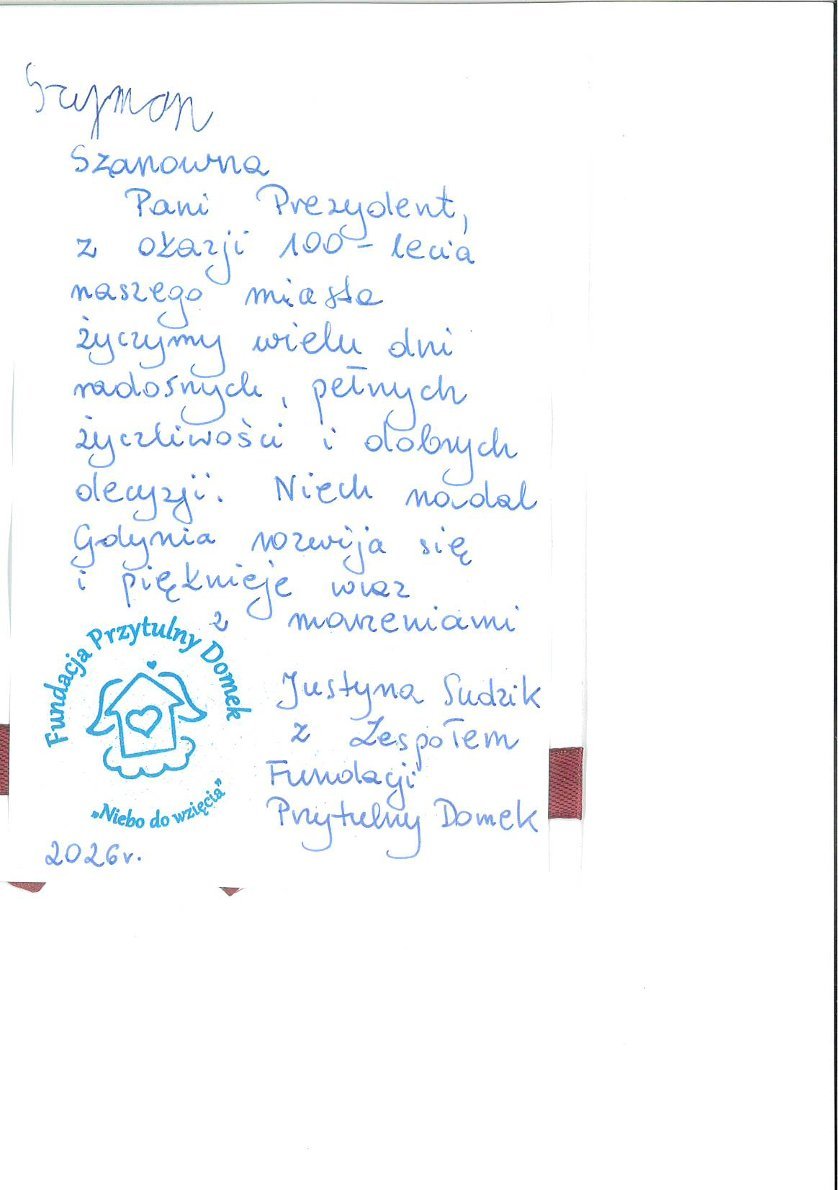 Szymon
Szanowna
Pani Prezydent,
z okazji 100-lecia
naszego miasta
życzymy wielu dni
radosnych, pełnych
życzliwości i dobrych
decyzji. Niech nadal
Gdynia rozwija się
i pięknieje wraz
z marzeniami
Fundacja Przytulny Domek
„Niebo do wzięcia”
Justyna Sudzik
z Zespołem
Fundacji
Przytulny Domek
2026r.